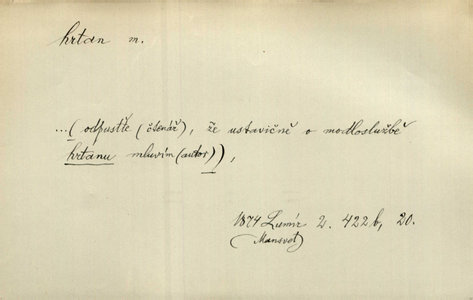 hrtan m.
...( odpusťte (čtenář), že ustavičně o modloslužbě
hrtanu mluvím (autor)),
1874 Lumír 2. 422b, 20.
(Mansvet)